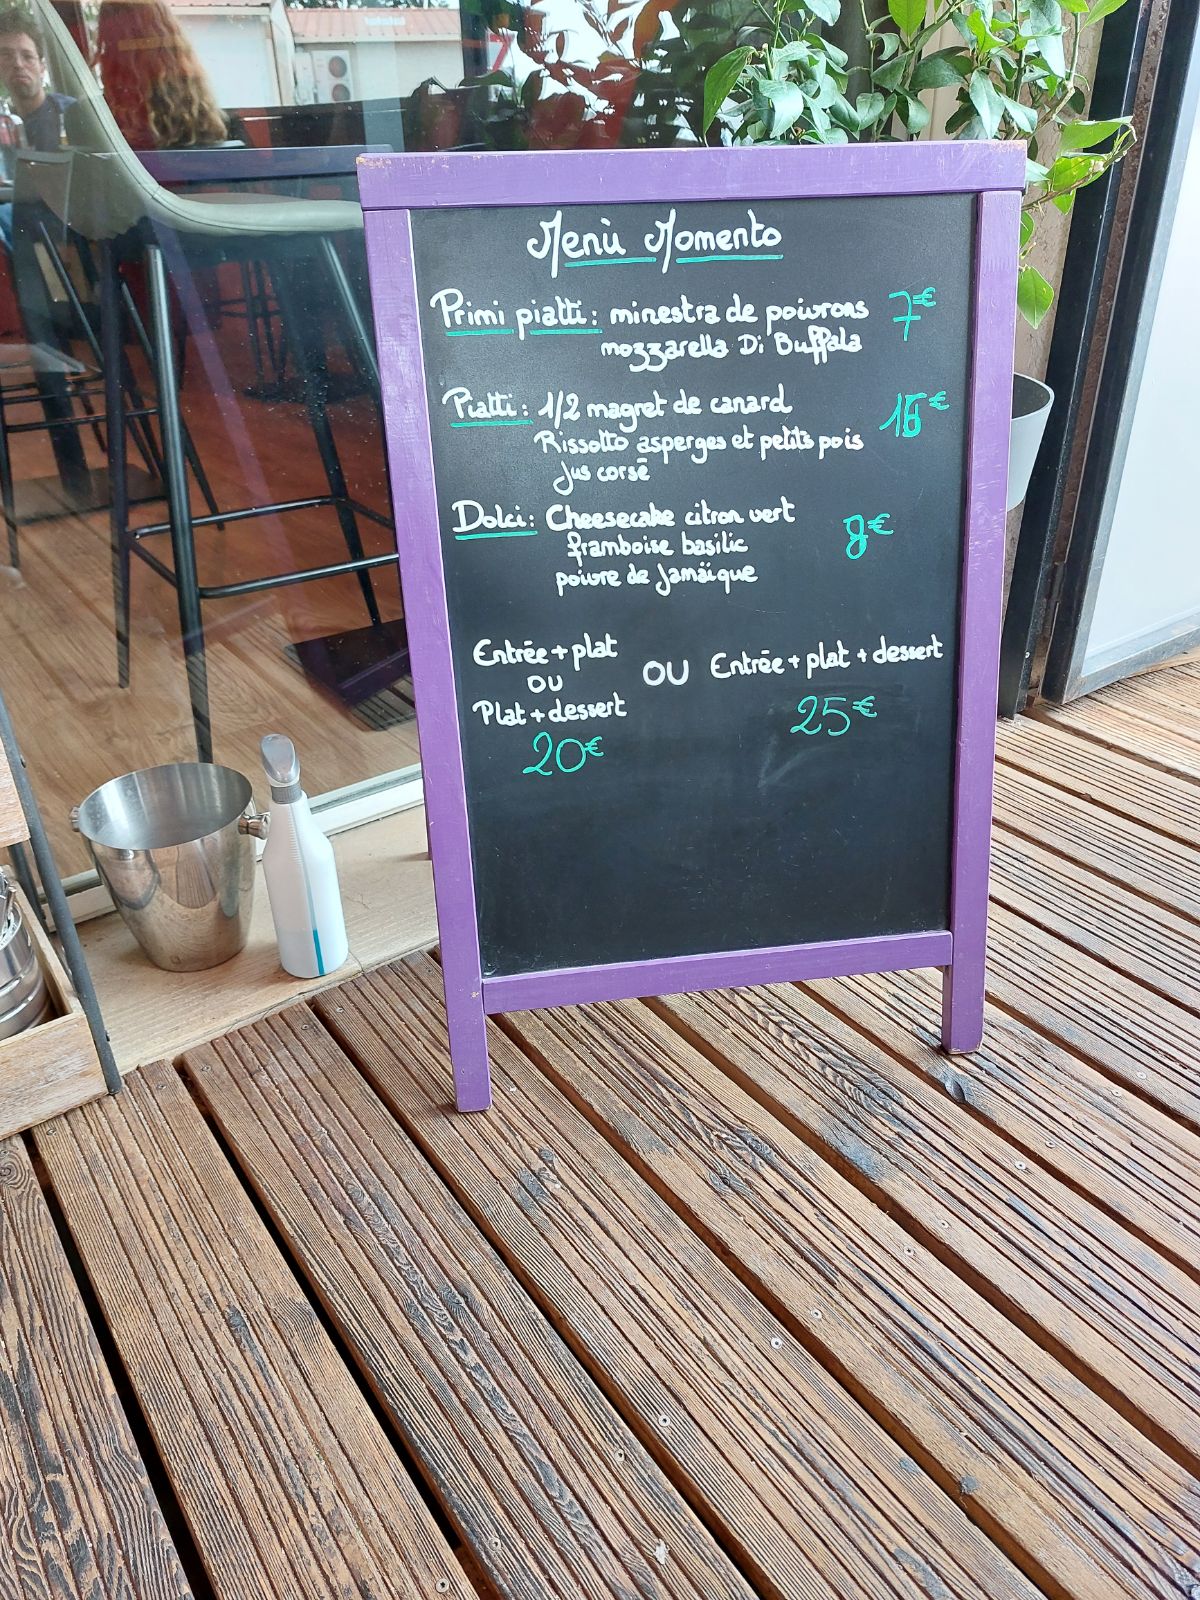 Menù Momento
Primi piatti : minestra de poivrons 7€
mozzarella Di Buffala
Piatti : 1/2 magret de canard
Rissotto asperges et petits pois
jus corsé
Dolci : Cheesecake citron vert
framboise basilic 8€
poivre de Jamaïque
Entrée + plat
OU
Plat + dessert
20€
OU
Entrée + plat + dessert
25€